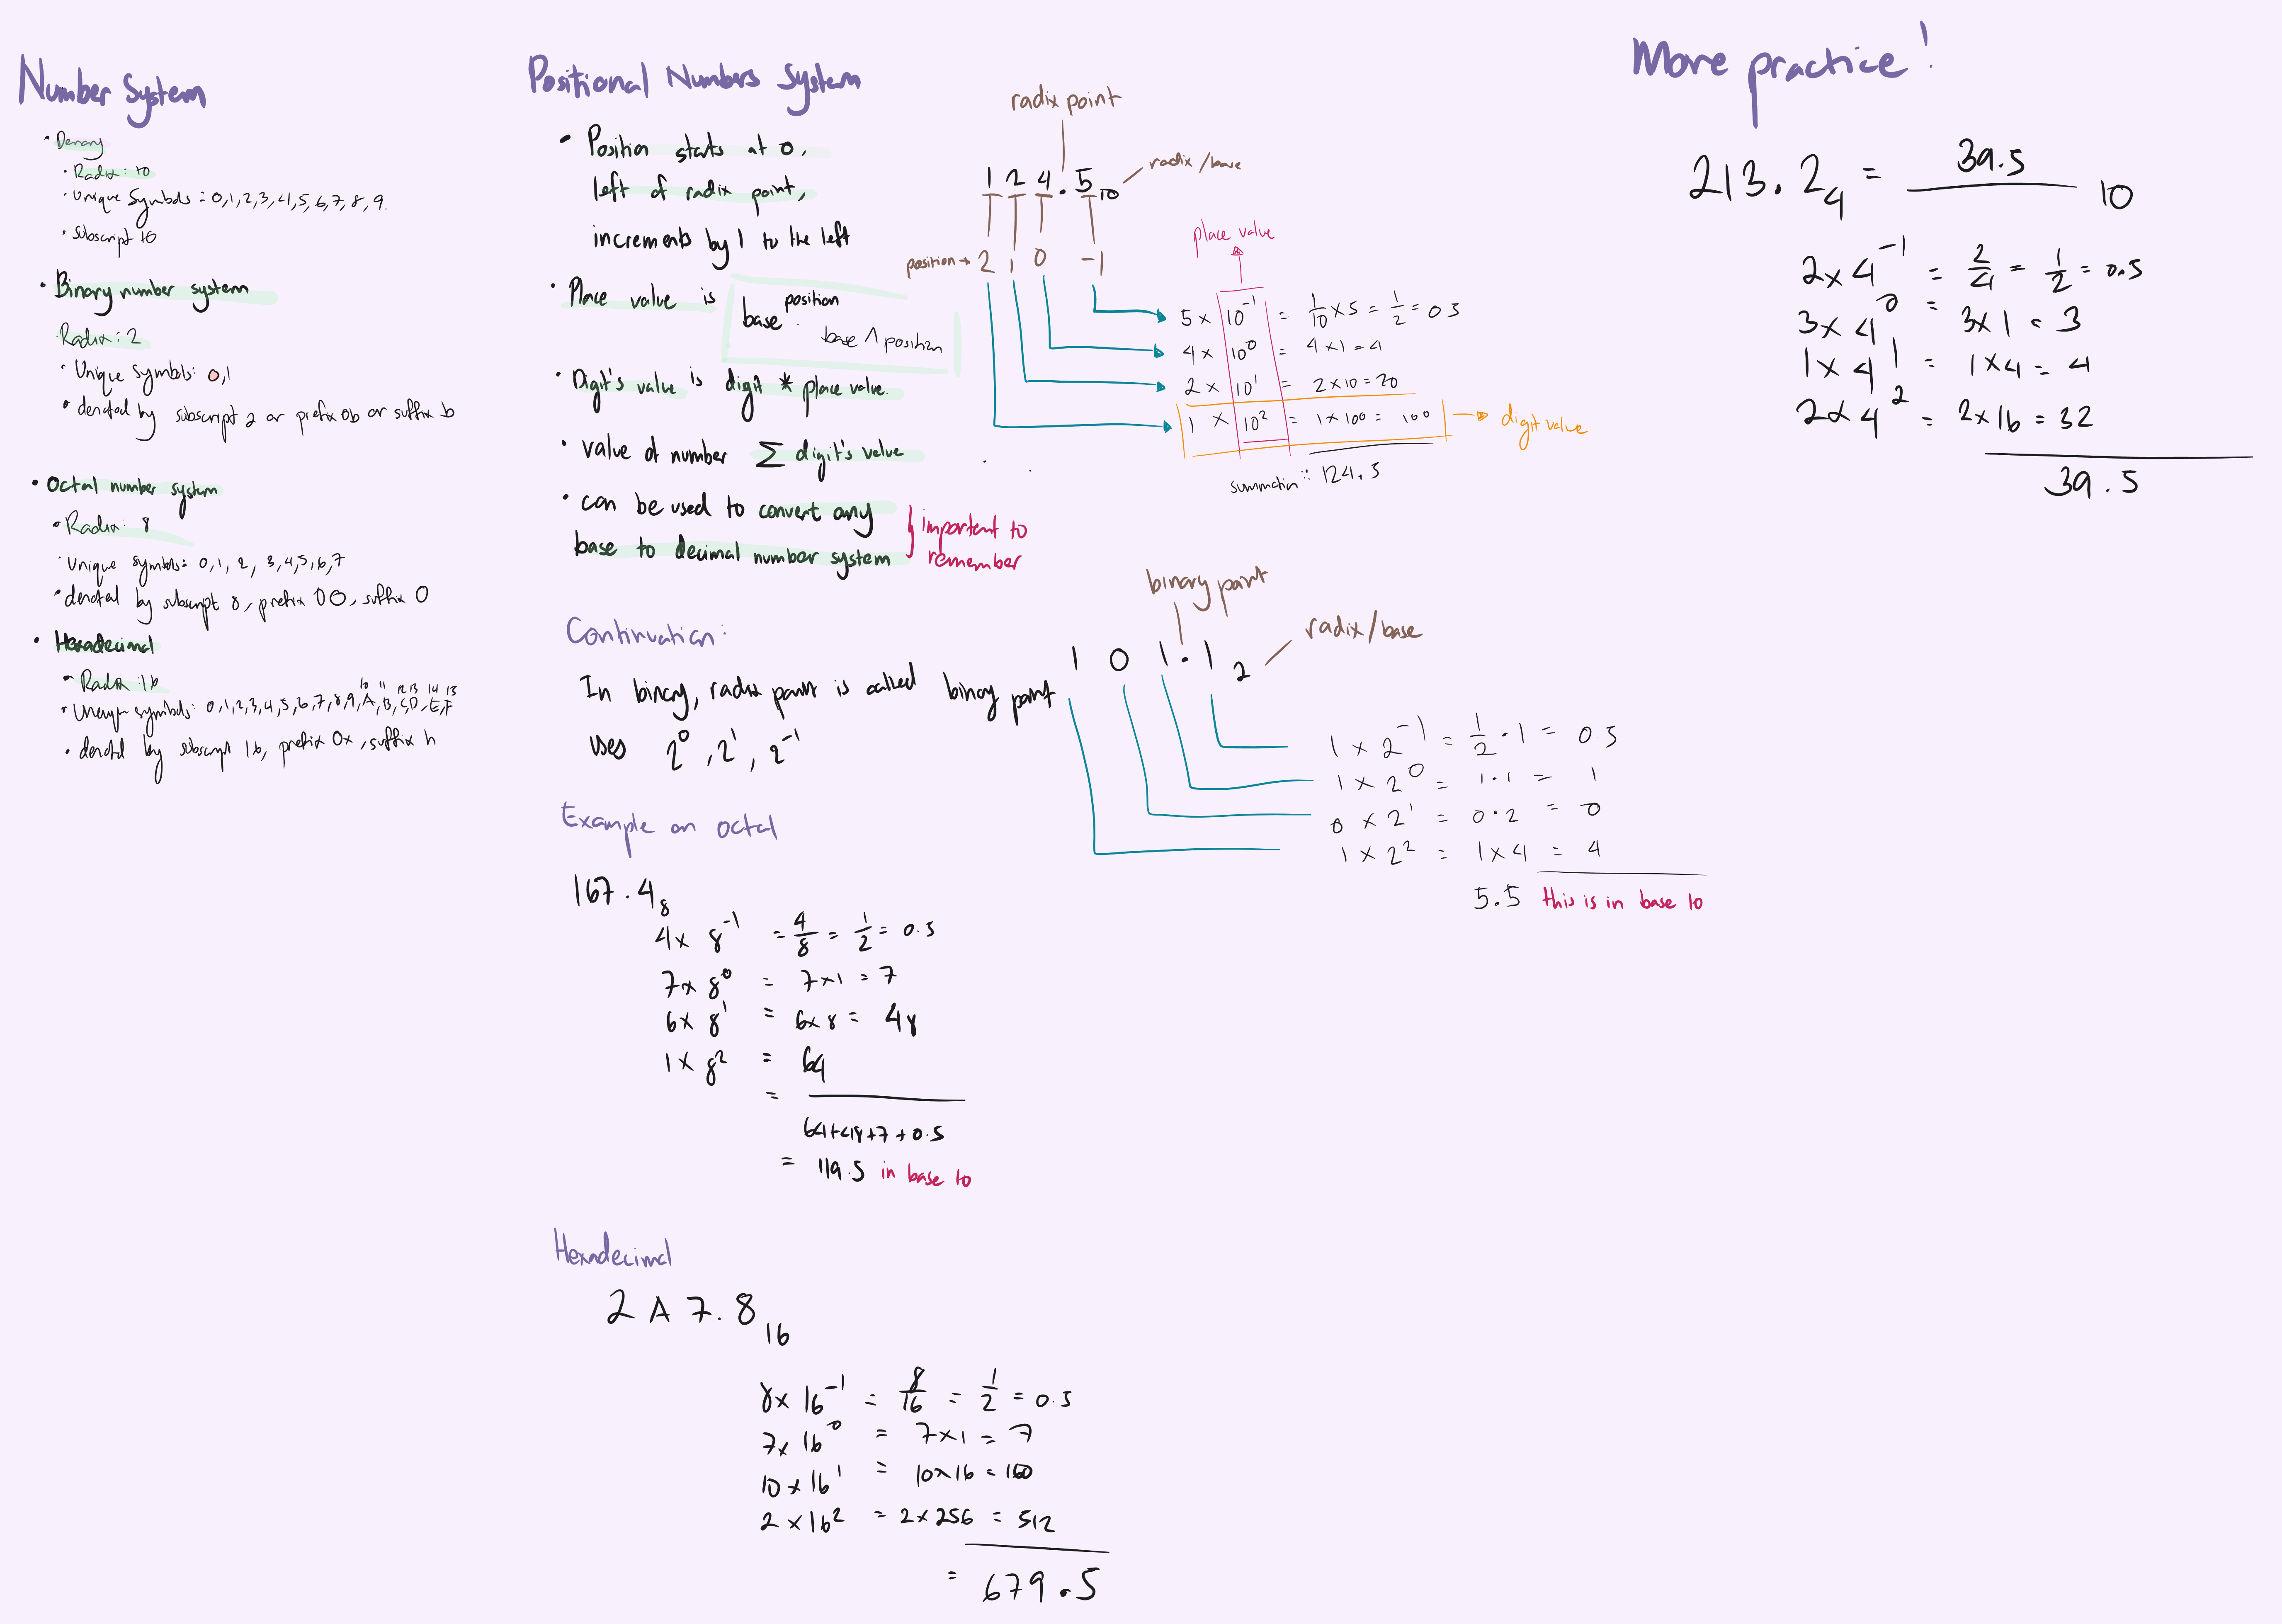 Number System
• Denary
• Radix: 10
• Unique Symbols: 0,1,2,3,4,5,6,7,8,9.
• Subscript 10
• Binary number system
Radix: 2
• Unique symbols: 0,1
• denoted by subscript 2 or prefix 0b or suffix b
• Octal number system
• Radix: 8
• Unique symbols: 0,1,2,3,4,5,6,7
• denoted by subscript 8, prefix 0O, suffix O
• Hexadecimal
• Radix: 16
10 11 12 13 14 15
• Unique symbols: 0,1,2,3,4,5,6,7,8,9,A,B,C,D,E,F
• denoted by subscript 16, prefix 0x, suffix h
Positional Numbers System
• Position starts at 0,
left of radix point,
increments by 1 to the left
• Place value is base^position
base ^ position
• Digit's value is digit * place value.
• value of number Σ digit's value
• can be used to convert any
base to decimal number system
} important to
remember
radix point
124.5₁₀
radix/base
position → 2 1 0 -1
place value
5 × 10⁻¹ = 1/10 × 5 = 1/2 = 0.5
4 × 10⁰ = 4 × 1 = 4
2 × 10¹ = 2 × 10 = 20
1 × 10² = 1 × 100 = 100 → digit value
summation: 124.5
Continuation:
In binary, radix point is called binary point
uses 2⁰, 2¹, 2⁻¹
binary point
101.1₂
radix/base
1 × 2⁻¹ = 1/2 · 1 = 0.5
1 × 2⁰ = 1·1 = 1
0 × 2¹ = 0·2 = 0
1 × 2² = 1×4 = 4
5.5 this is in base 10
Example on octal
167.4₈
4 × 8⁻¹ = 4/8 = 1/2 = 0.5
7 × 8⁰ = 7×1 = 7
6 × 8¹ = 6×8 = 48
1 × 8² = 64
=
64+48+7+0.5
= 119.5 in base 10
Hexadecimal
2A7.8₁₆
8 × 16⁻¹ = 8/16 = 1/2 = 0.5
7 × 16⁰ = 7×1 = 7
10 × 16¹ = 10×16 = 160
2 × 16² = 2×256 = 512
= 679.5
More practice!
213.2₄ = 39.5 ₁₀
2 × 4⁻¹ = 2/4 = 1/2 = 0.5
3 × 4⁰ = 3×1 = 3
1 × 4¹ = 1×4 = 4
2 × 4² = 2×16 = 32
39.5